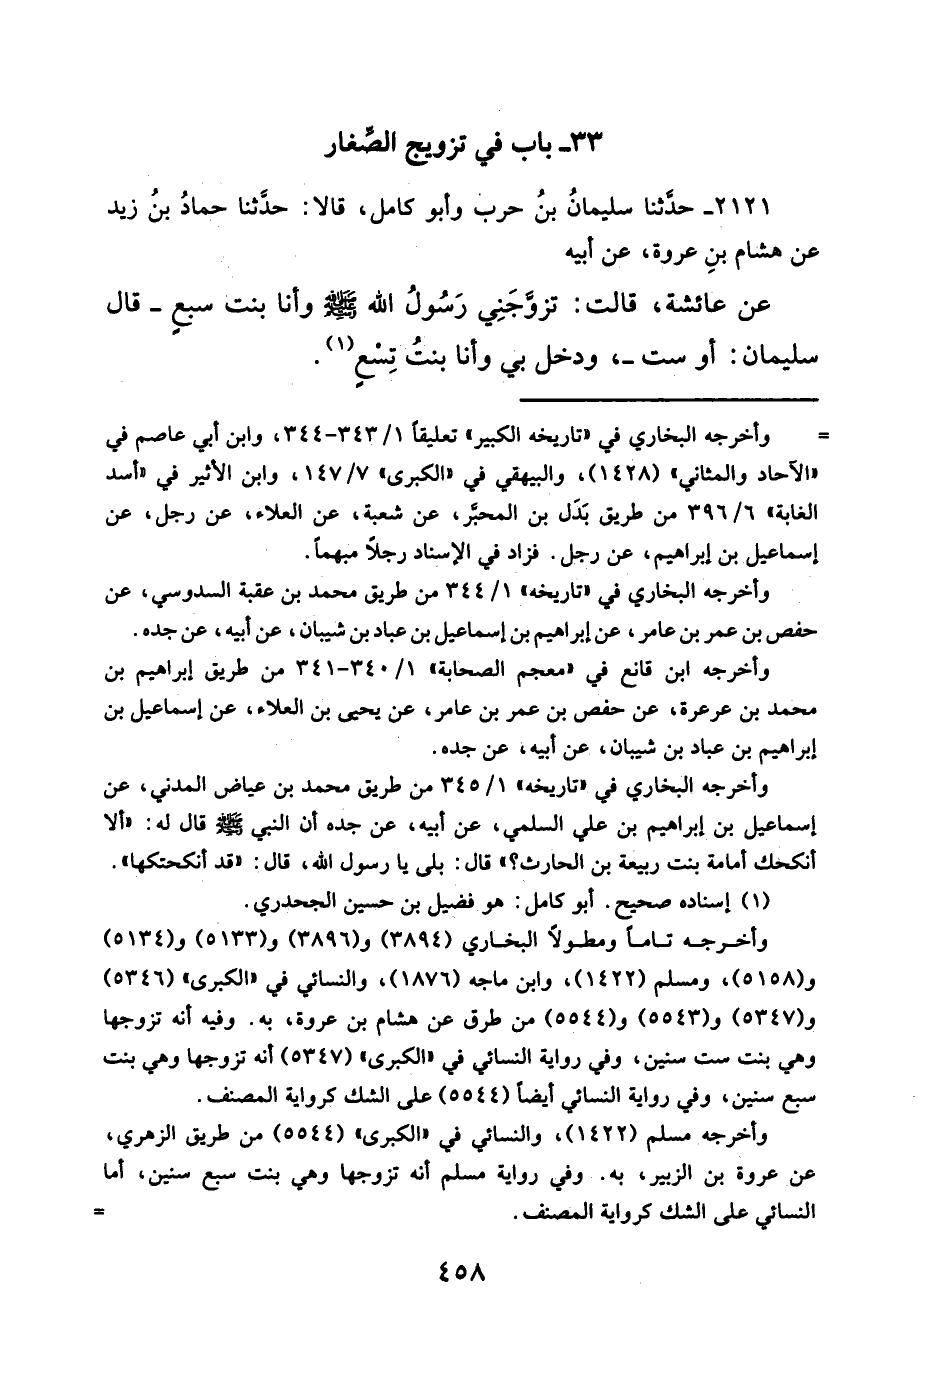 ٣٣ـ باب في تزويج الصِّغار
٢١٢١ـ حدَّثنا سليمانُ بنُ حرب وأبو كامل، قالا: حدَّثنا حمادُ بنُ زيد
عن هشام بنِ عروة، عن أبيه
عن عائشة، قالت: تزوَّجَنِي رَسُولُ الله ﷺ وأنا بنت سبعٍ ـ قال
سليمان: أو ست ـ، ودخل بي وأنا بنتُ تِسْعٍ(١).
= وأخرجه البخاري في «تاريخه الكبير» تعليقاً ١/ ٣٤٣-٣٤٤، وابن أبي عاصم في
«الآحاد والمثاني» (١٤٢٨)، والبيهقي في «الكبرى» ٧/ ١٤٧، وابن الأثير في «أسد
الغابة» ٦/ ٣٩٦ من طريق بَدَل بن المحبَّر، عن شعبة، عن العلاء، عن رجل، عن
إسماعيل بن إبراهيم، عن رجل. فزاد في الإسناد رجلاً مبهماً.
وأخرجه البخاري في «تاريخه» ١/ ٣٤٤ من طريق محمد بن عقبة السدوسي، عن
حفص بن عمر بن عامر، عن إبراهيم بن إسماعيل بن عباد بن شيبان، عن أبيه، عن جده.
وأخرجه ابن قانع في «معجم الصحابة» ١/ ٣٤٠-٣٤١ من طريق إبراهيم بن
محمد بن عرعرة، عن حفص بن عمر بن عامر، عن يحيى بن العلاء، عن إسماعيل بن
إبراهيم بن عباد بن شيبان، عن أبيه، عن جده.
وأخرجه البخاري في «تاريخه» ١/ ٣٤٥ من طريق محمد بن عياض المدني، عن
إسماعيل بن إبراهيم بن علي السلمي، عن أبيه، عن جده أن النبي ﷺ قال له: «ألا
أنكحك أمامة بنت ربيعة بن الحارث؟» قال: بلى يا رسول الله، قال: «قد أنكحتكها».
(١) إسناده صحيح. أبو كامل: هو فضيل بن حسين الجحدري.
وأخرجه تاماً ومطولاً البخاري (٣٨٩٤) و(٣٨٩٦) و(٥١٣٣) و(٥١٣٤)
و(٥١٥٨)، ومسلم (١٤٢٢)، وابن ماجه (١٨٧٦)، والنسائي في «الكبرى» (٥٣٤٦)
و(٥٣٤٧) و(٥٥٤٣) و(٥٥٤٤) من طرق عن هشام بن عروة، به. وفيه أنه تزوجها
وهي بنت ست سنين، وفي رواية النسائي في «الكبرى» (٥٣٤٧) أنه تزوجها وهي بنت
سبع سنين، وفي رواية النسائي أيضاً (٥٥٤٤) على الشك كرواية المصنف.
وأخرجه مسلم (١٤٢٢)، والنسائي في «الكبرى» (٥٥٤٤) من طريق الزهري،
عن عروة بن الزبير، به. وفي رواية مسلم أنه تزوجها وهي بنت سبع سنين، أما
النسائي على الشك كرواية المصنف. =
٤٥٨